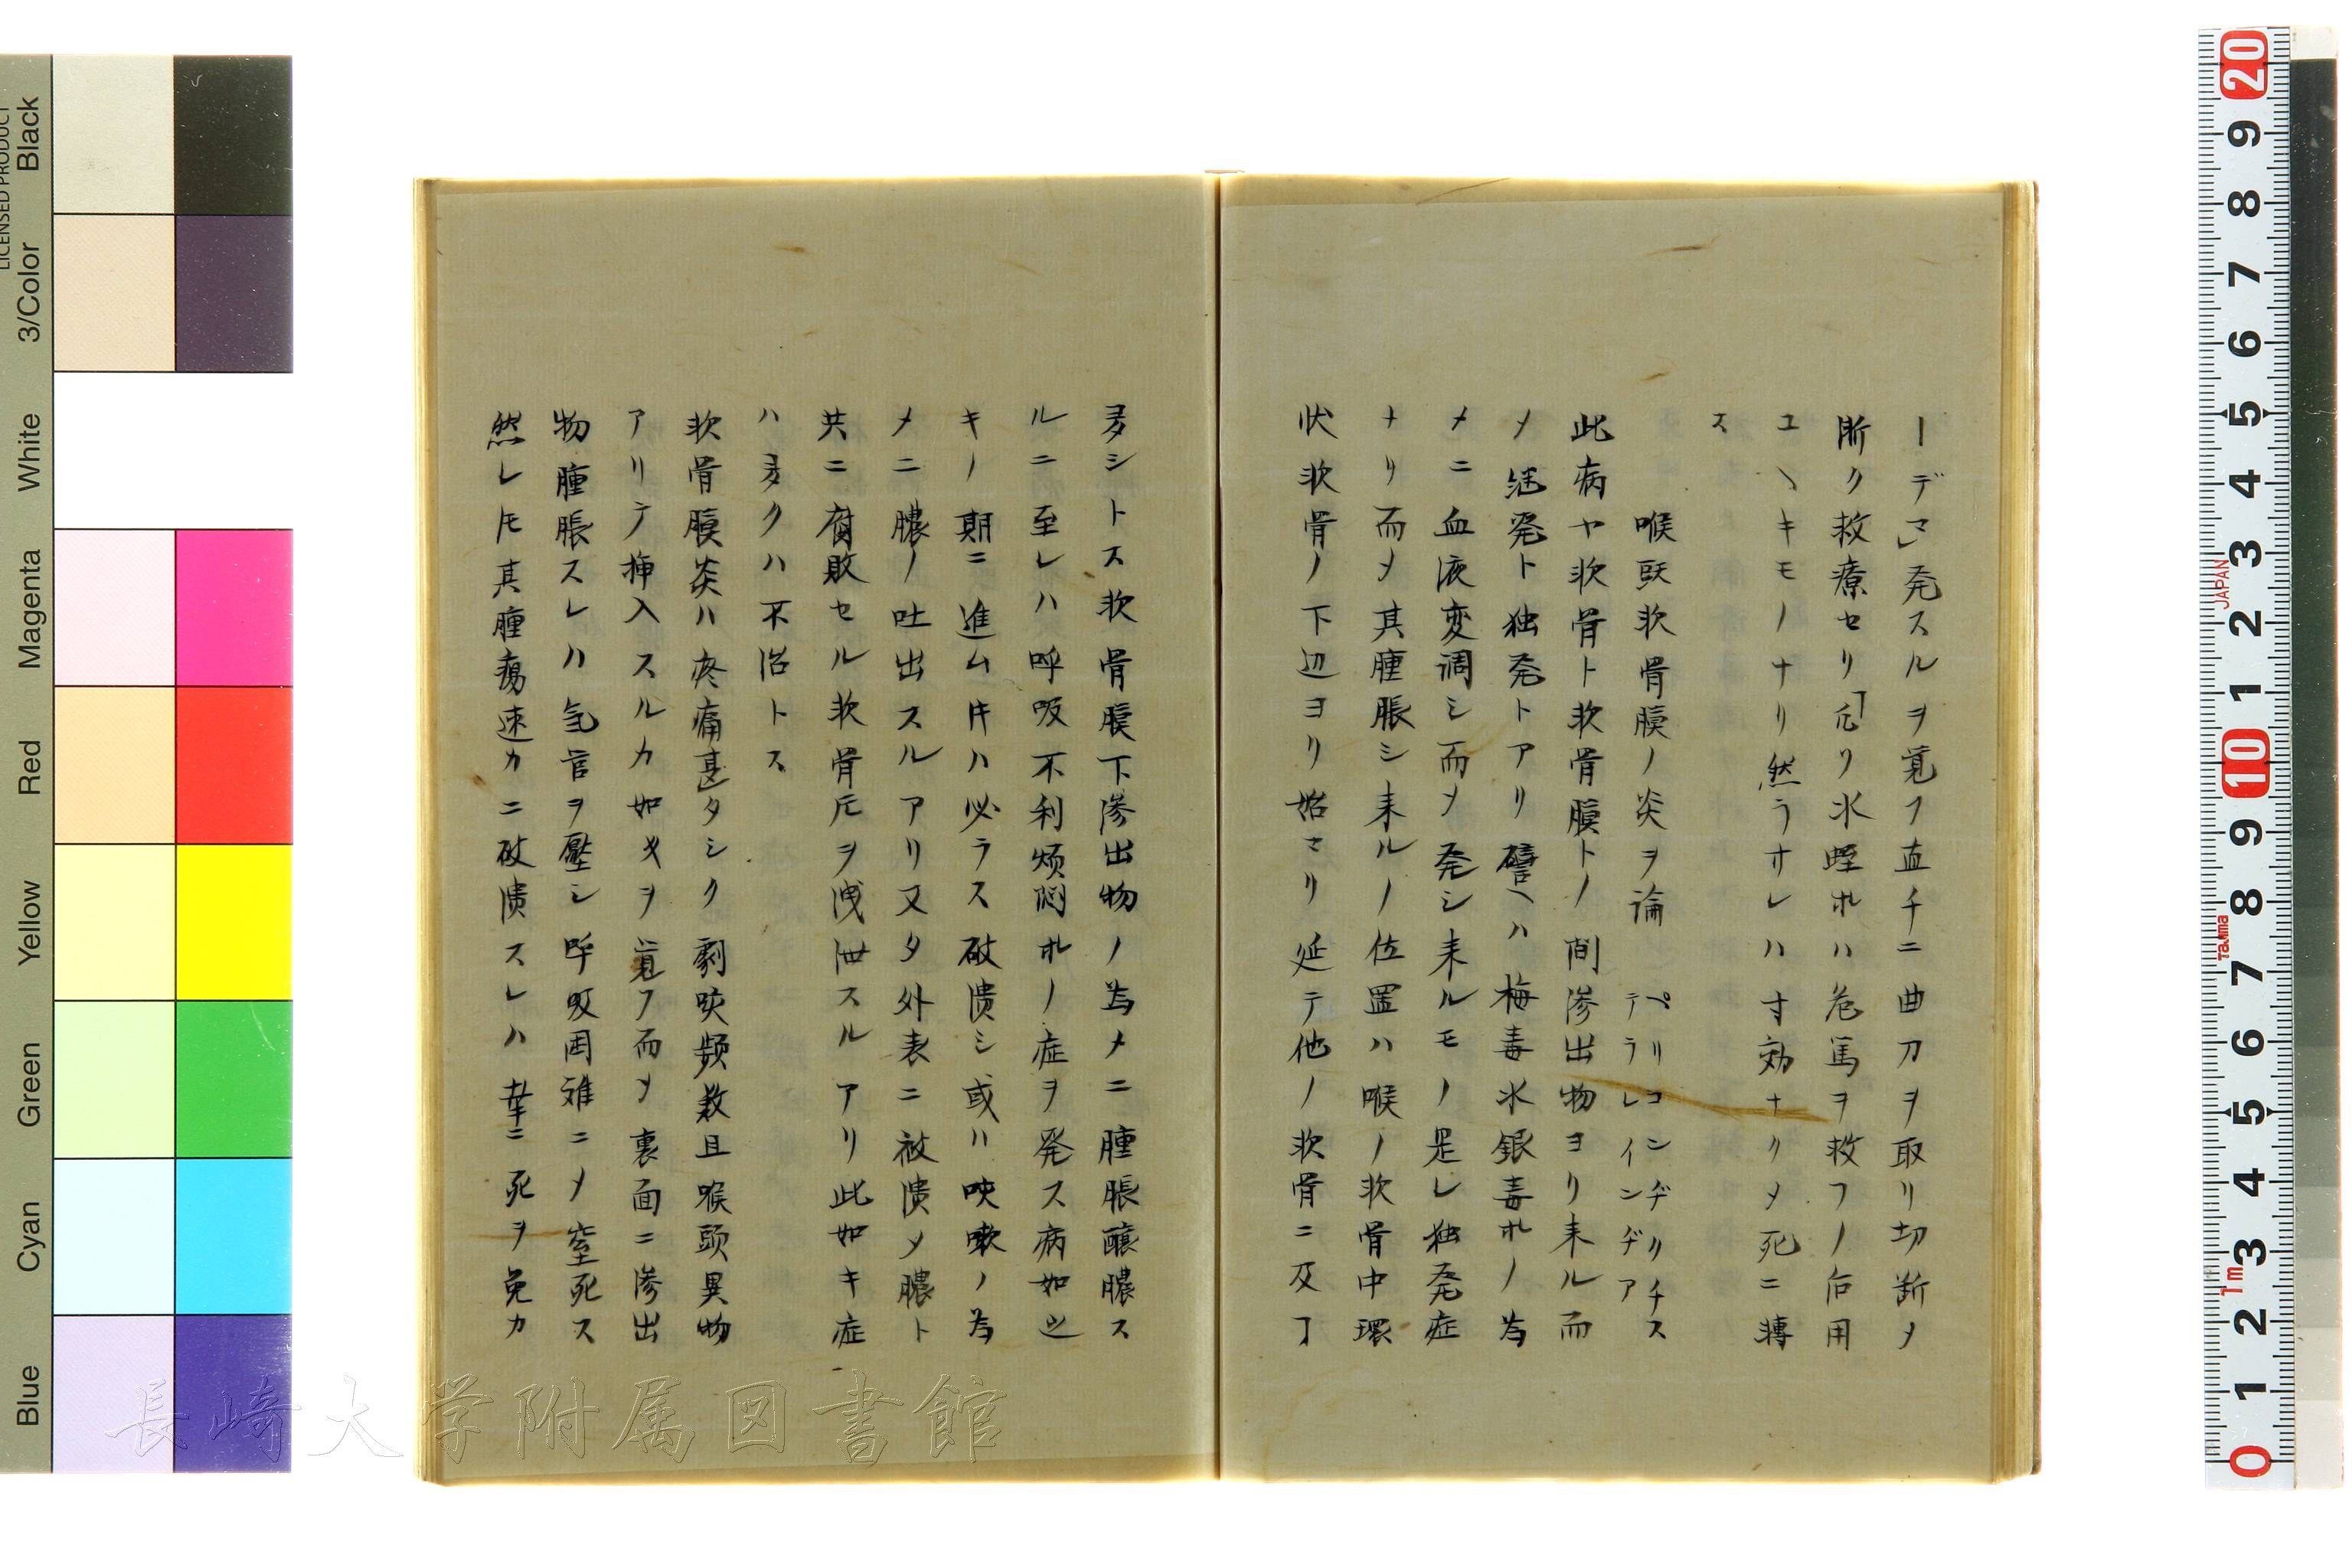 ーデマ」発スルヲ覚フ直チニ曲刀ヲ取リ切断〆
断ク救療セリ「 リ水蛭ホハ危篤ヲ救フノ 用
ユヘキモノナリ然ラサレハ寸効ナクメ死ニ轉
ス
喉頭軟骨膜ノ炎ヲ論 ペリコンデリチス
テラレインヂア
此病ヤ軟骨ト軟骨膜トノ間滲出物ヨリ来ル而
〆 発ト独発トアリ譬ヘハ梅毒水銀毒ホノ為
メニ血液変調シ而〆発シ来ルモノ是レ独発症
ナリ而〆其腫脹シ来ルノ位置ハ喉ノ軟骨中環
状軟骨ノ下辺ヨリ始マリ延テ他ノ軟骨ニ及丁
多シトス軟骨膜下滲出物ノ為メニ腫脹醸膿ス
ルニ至レハ呼吸不利煩悶ホノ症ヲ発ス病如此
キノ期ニ進ム井ハ必ラス破潰シ或ハ咳嗽ノ為
メニ膿ノ吐出スルアリ又タ外表ニ破潰〆膿ト
共ニ腐敗セル軟骨片ヲ洩泄スルアリ此如キ症
ハ多クハ不治トス
軟骨膜炎ハ疼痛甚タシク劇咳頻数且喉頭異物
アリテ挿入スルカ如 ヲ覚フ而〆裏面ニ滲出
物腫脹スレハ気管ヲ壓シ呼吸困難ニ〆窒死ス
然レ𪜈其腫瘍速カニ破潰スレハ幸ニ死ヲ免カ
長崎大学附属図書館
LICENSED PRODUCT
Black
3/Color
White
Magenta
Red
Yellow
Green
Cyan
Blue
20
9
8
7
6
5
4
3
JAPAN
2
1
10
9
8
Tajima
7
6
5
4
3
1m
2
1
0